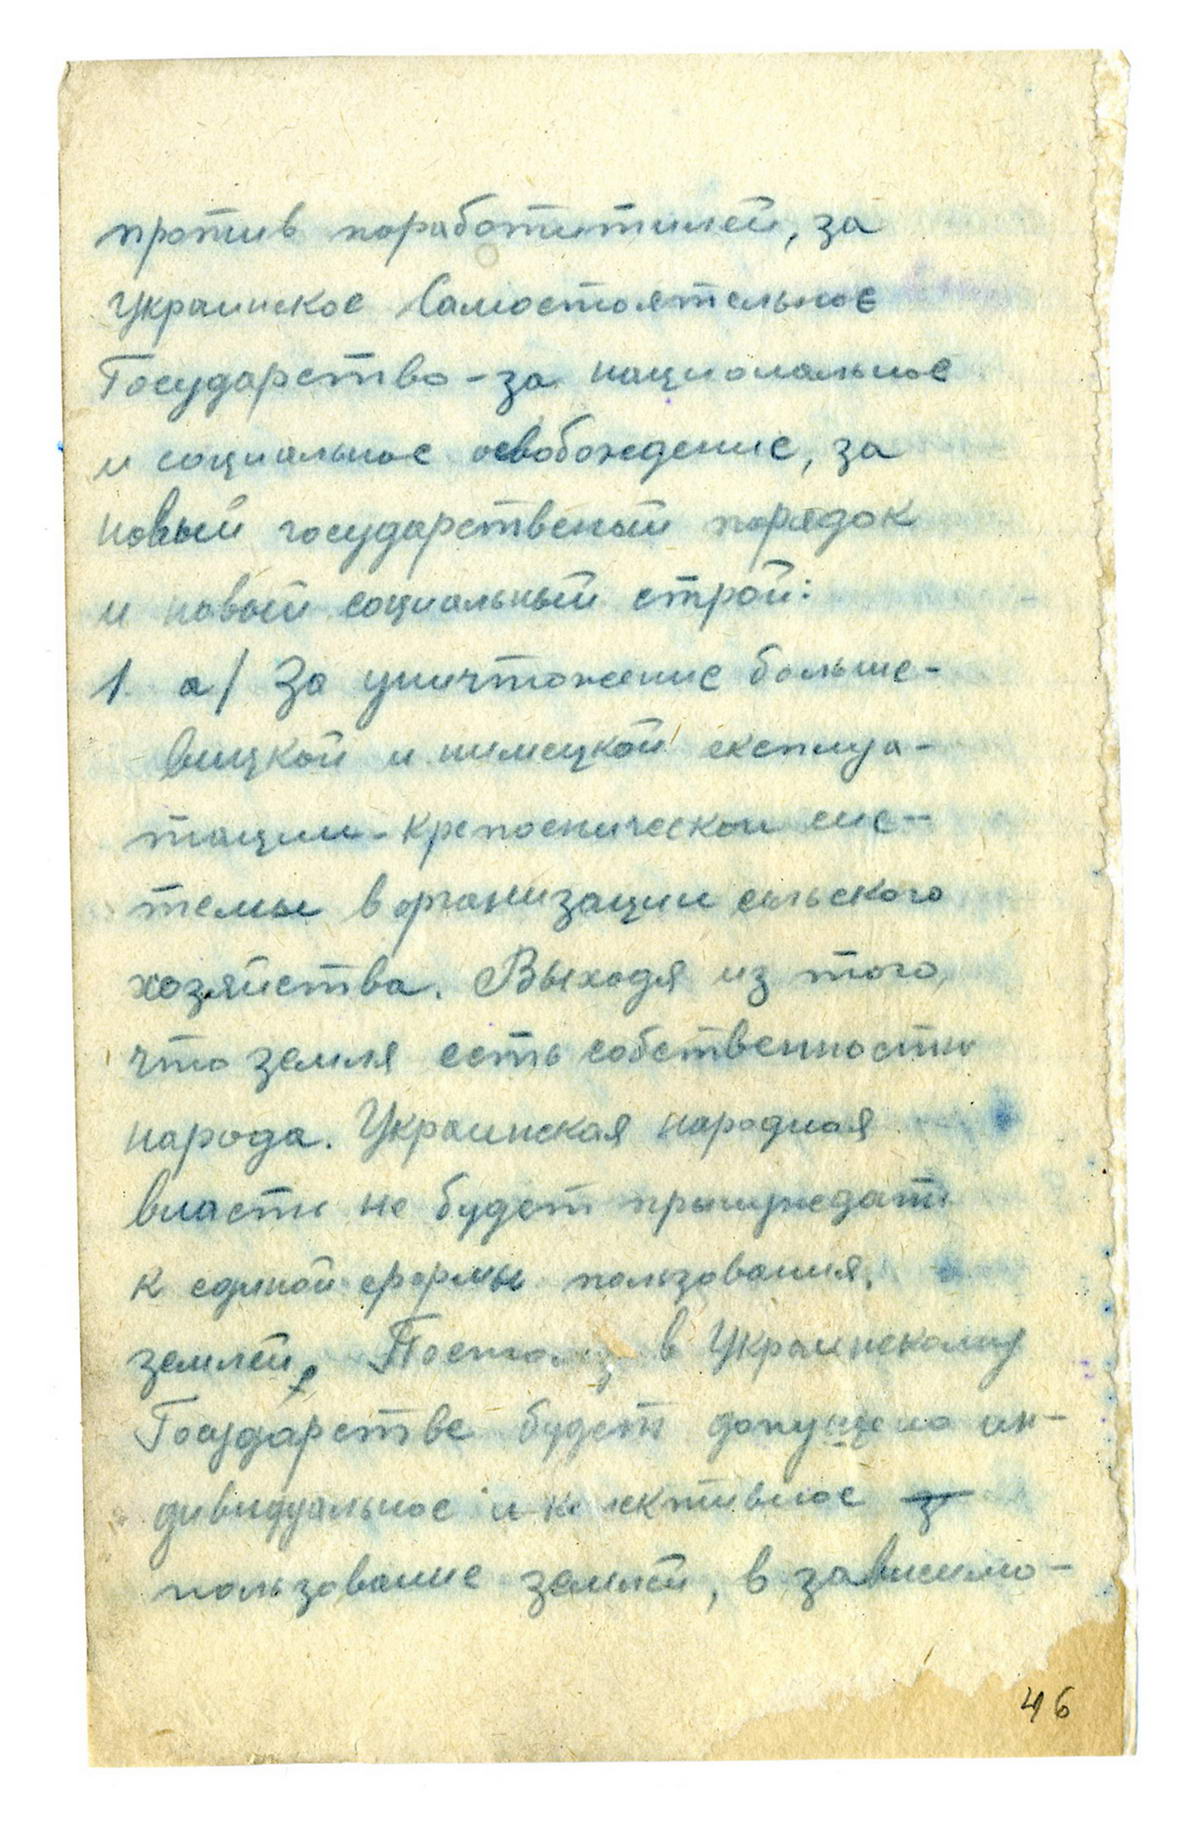 против поработитилей, за
Украинское Самостоятельное
Государство - за национальное
и социальное освобождение, за
новый государственый порядок
и новый социальный строй:
1. а/ За уничтожение больше-
вицкой и нимецкой експлуа-
тации - крепоснической сис-
темы в организации сельского
хозяйства. Выходя из того,
что земля есть собственность
народа. Украинская народная
власть не будет принуждать
к едной формы пользования,
землей, в Украинскому
Государстве будеть допущено ин-
дивидуальное и колективное
пользование землей, в зависимо-
46